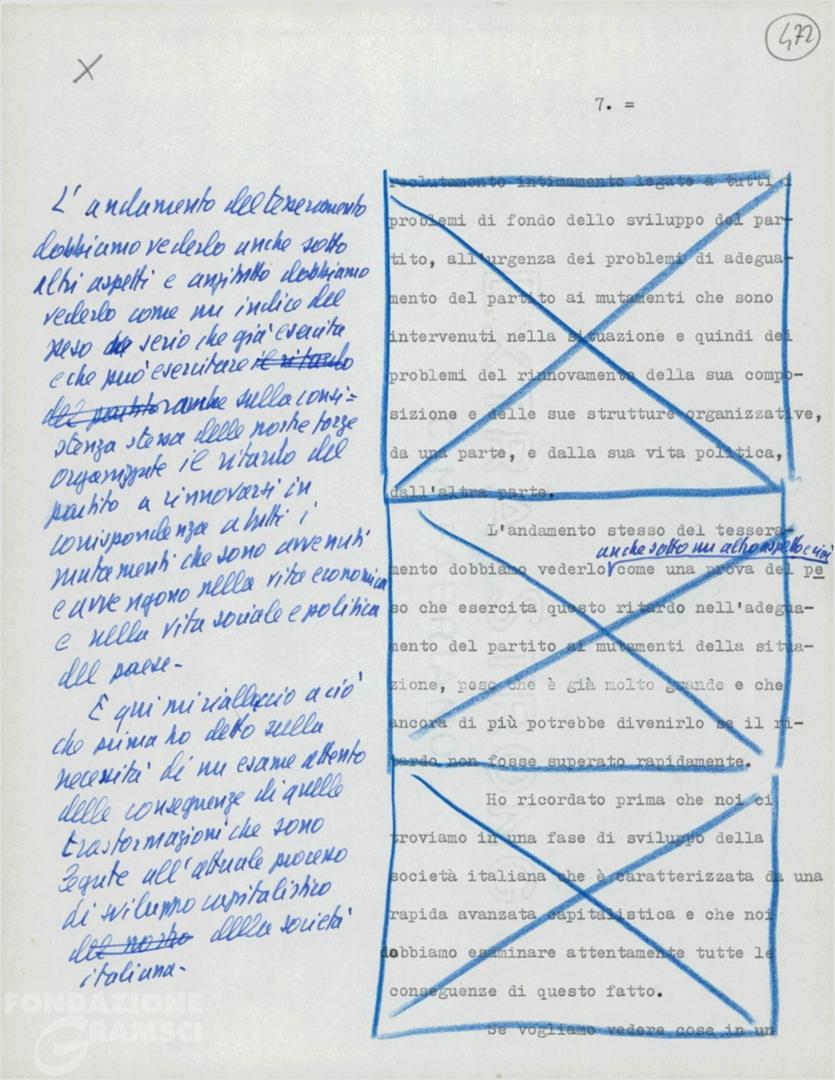 472
X
7. =
L'andamento del tesseramento
dobbiamo vederlo anche sotto
altri aspetti e anzitutto dobbiamo
vederlo come un indice del
peso serio che già esercita
e che può esercitare il ritardo
del partito anche sulla consi=
stenza stessa delle nostre forze
organizzate il ritardo del
partito a rinnovarsi in
corrispondenza a tutti i
mutamenti che sono avvenuti
e avvengono nella vita economica
e nella vita sociale e politica
del paese-
E qui mi riallaccio a ciò
che prima ho detto sulla
necessità di un esame attento
delle conseguenze di quelle
trasformazioni che sono
legate all'attuale processo
di sviluppo capitalistico
del nostro della società
italiana-
reclutamento intimamente legate a tutti i
problemi di fondo dello sviluppo del par-
tito, all'urgenza dei problemi di adegua-
mento del partito ai mutamenti che sono
intervenuti nella situazione e quindi dei
problemi del rinnovamento della sua compo-
sizione e delle sue strutture organizzative,
da una parte, e dalla sua vita politica,
dall'altra parte.
L'andamento stesso del tessera-
anche sotto un altro aspetto e cioè
mento dobbiamo vederlo come una prova del pe
so che esercita questo ritardo nell'adegua-
mento del partito ai mutamenti della situa-
zione, peso che è già molto grande e che
ancora di più potrebbe divenirlo se il ri-
tardo non fosse superato rapidamente.
Ho ricordato prima che noi ci
troviamo in una fase di sviluppo della
società italiana che è caratterizzata da una
rapida avanzata capitalistica e che noi
dobbiamo esaminare attentamente tutte le
conseguenze di questo fatto.
Se vogliamo vedere cose in un
FONDAZIONE
GRAMSCI